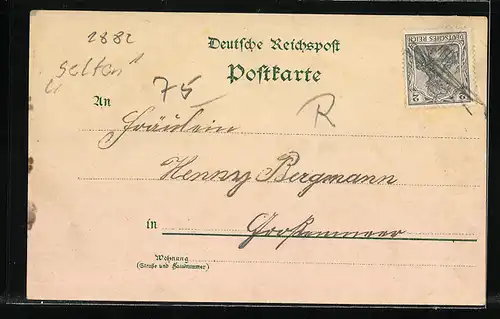 2882
"selten"
75
R
Deutsche Reichspost
Postkarte
DEUTSCHES REICH
2 2
An
Fräulein
Henny Bergmann
in Großenmeer
Wohnung
(Straße und Hausnummer)